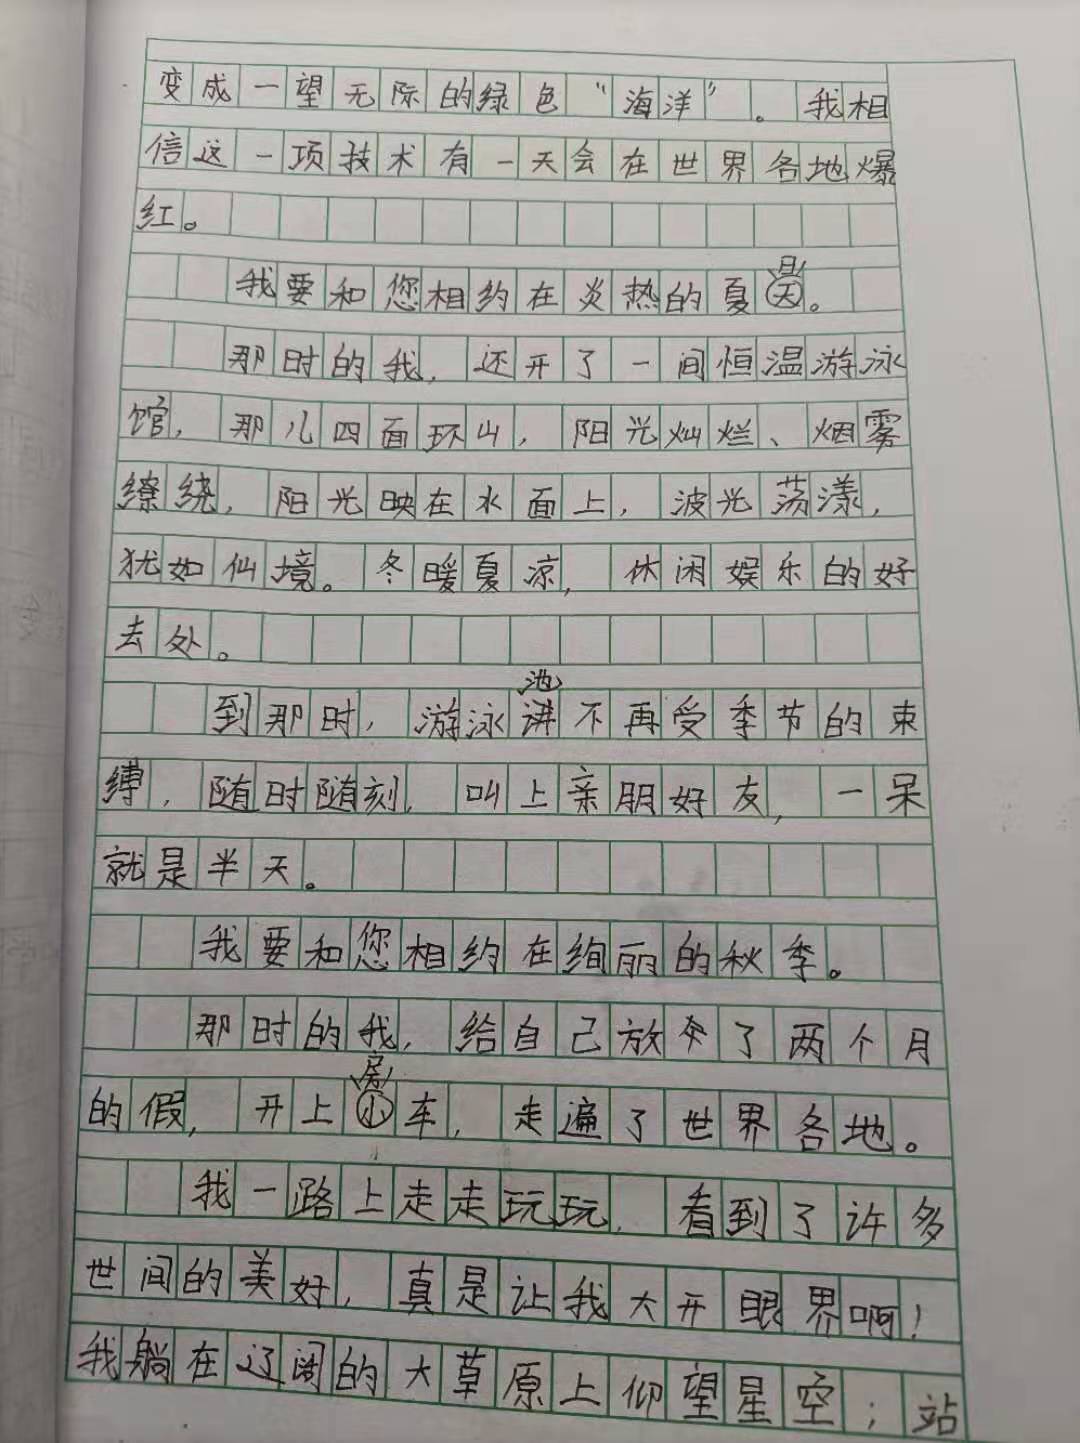 变成一望无际的绿色“海洋”。我相
信这一项技术有一天会在世界各地爆
红。
我要和您相约在炎热的夏日。
那时的我,还开了一间恒温游泳
馆,那儿四面环山,阳光灿烂、烟雾
缭绕,阳光映在水面上,波光荡漾,
犹如仙境。冬暖夏凉,休闲娱乐的好
去处。
到那时,游泳池不再受季节的束
缚,随时随刻,叫上亲朋好友,一呆
就是半天。
我要和您相约在绚丽的秋季。
那时的我,给自己放了两个月
的假,开上房车,走遍了世界各地。
我一路上走走玩玩,看到了许多
世间的美好,真是让我大开眼界啊!
我躺在辽阔的大草原上仰望星空;站